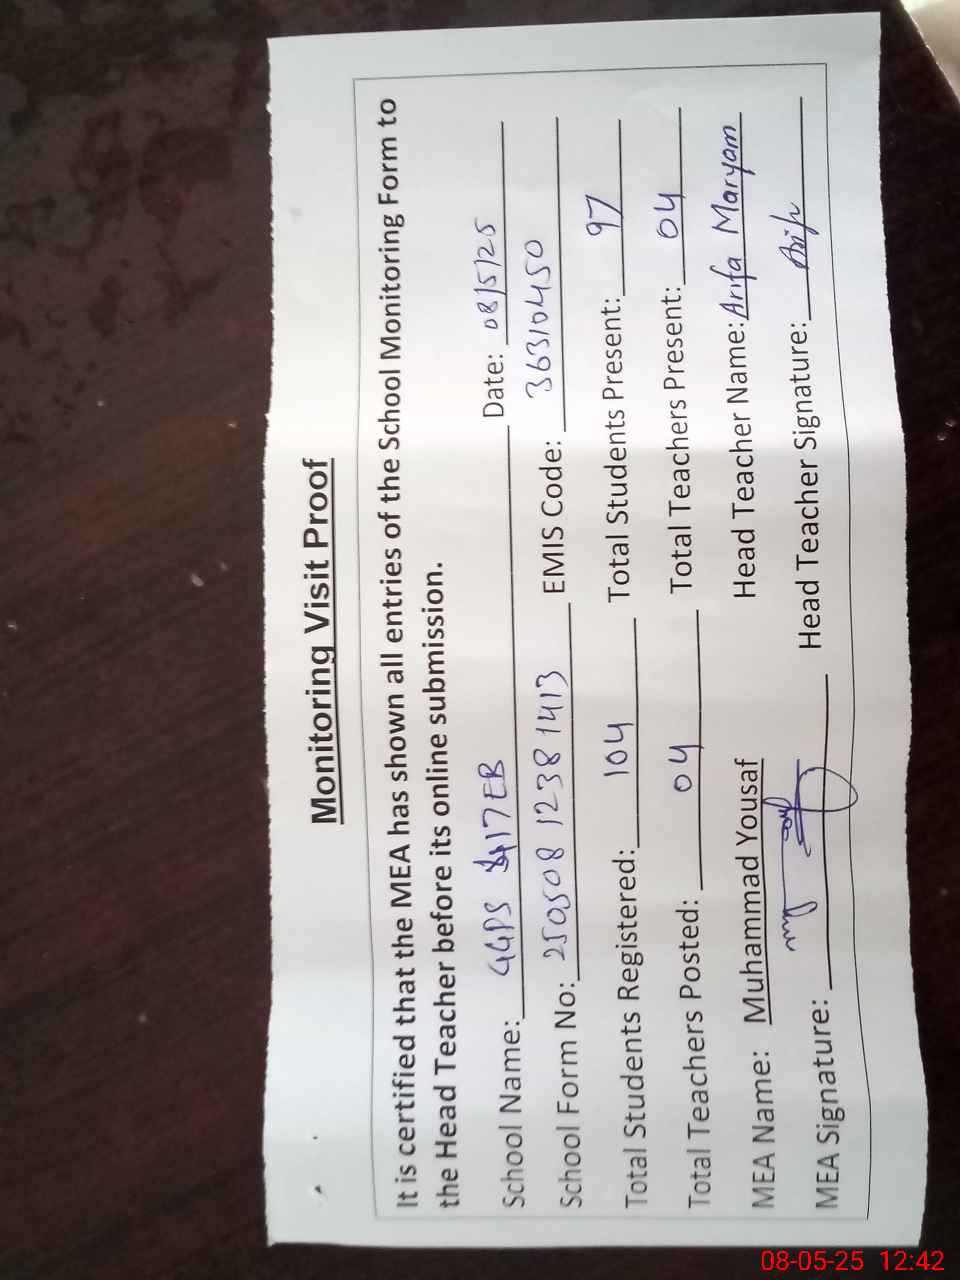 Monitoring Visit Proof
It is certified that the MEA has shown all entries of the School Monitoring Form to
the Head Teacher before its online submission.
School Name: GGPS 417EB Date: 08/5/25
School Form No: 250508 12381413 EMIS Code: 36310450
Total Students Registered: 104 Total Students Present: 97
Total Teachers Posted: 04 Total Teachers Present: 04
MEA Name: Muhammad Yousaf Head Teacher Name: Arifa Maryam
MEA Signature: Head Teacher Signature:
08-05-25 12:42